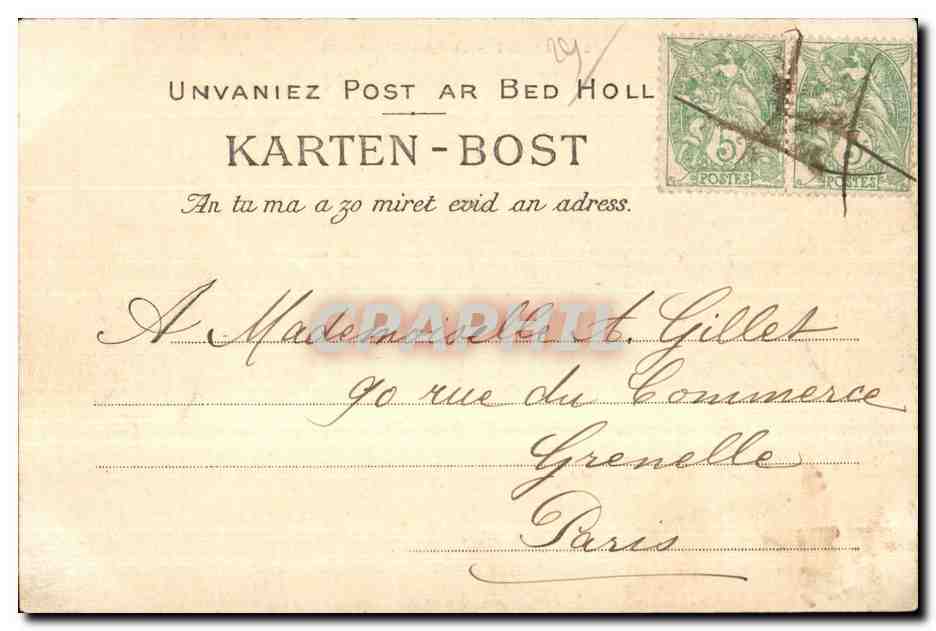 29
UNVANIEZ POST AR BED HOLL
KARTEN-BOST
An tu ma a zo miret evid an adress.
5 5
POSTES POSTES
CPARPHIL
A Mademoiselle A. Gillet
90 rue du Commerce
Grenelle
Paris